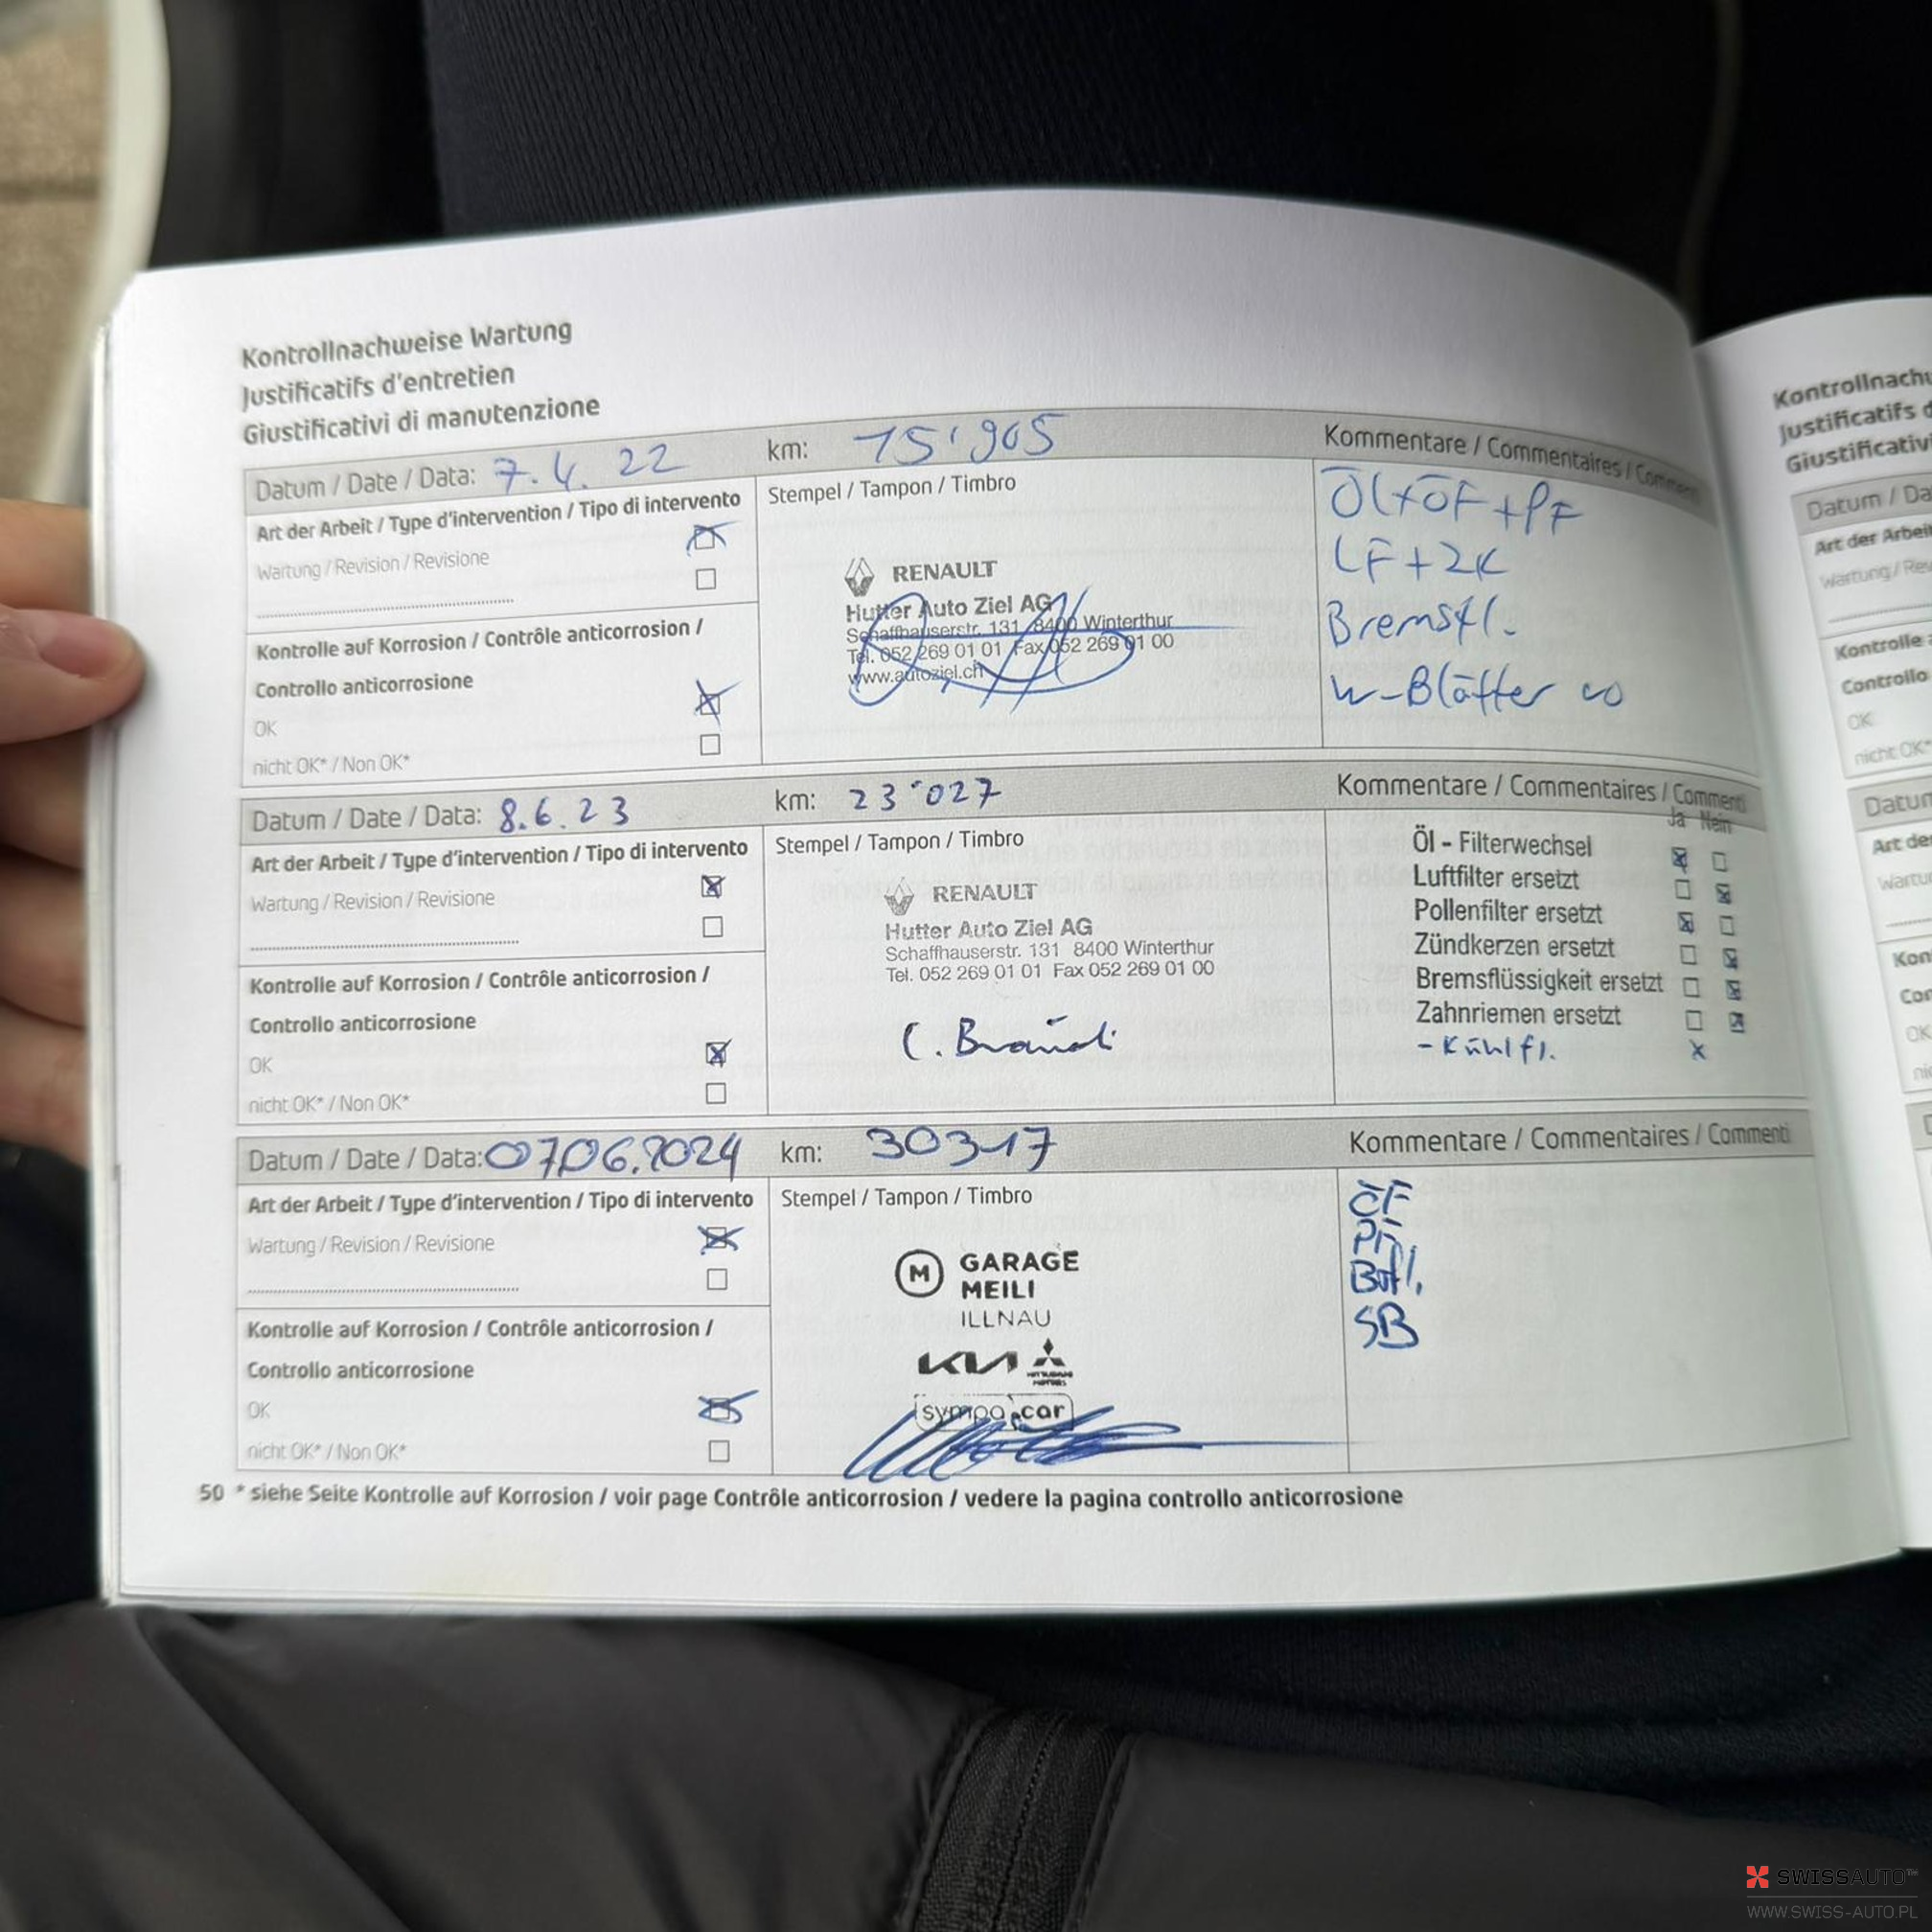 Kontrollnachweise Wartung
Justificatifs d'entretien
Giustificativi di manutenzione
Datum / Date / Data: 7.4.22 km: 15'905 Kommentare / Commentaires / Commenti
Art der Arbeit / Type d'intervention / Tipo di intervento Stempel / Tampon / Timbro
Wartung / Revision / Revisione
Öl+ÖF+PF
LF+ZK
Bremsfl.
W-Blätter
RENAULT
Hutter Auto Ziel AG
Schaffhauserstr. 131 8400 Winterthur
Tel. 052 269 01 01 Fax 052 269 01 00
www.autoziel.ch
Kontrolle auf Korrosion / Contrôle anticorrosion /
Controllo anticorrosione
OK
nicht OK* / Non OK*
Datum / Date / Data: 8.6.23 km: 23'027 Kommentare / Commentaires / Commenti
Art der Arbeit / Type d'intervention / Tipo di intervento Stempel / Tampon / Timbro
Wartung / Revision / Revisione
Ja Nein
Öl - Filterwechsel
Luftfilter ersetzt
Pollenfilter ersetzt
Zündkerzen ersetzt
Bremsflüssigkeit ersetzt
Zahnriemen ersetzt
- Kühlfl. x
RENAULT
Hutter Auto Ziel AG
Schaffhauserstr. 131 8400 Winterthur
Tel. 052 269 01 01 Fax 052 269 01 00
Kontrolle auf Korrosion / Contrôle anticorrosion /
Controllo anticorrosione
OK
nicht OK* / Non OK*
Datum / Date / Data: 07.06.2024 km: 30317 Kommentare / Commentaires / Commenti
Art der Arbeit / Type d'intervention / Tipo di intervento Stempel / Tampon / Timbro
Wartung / Revision / Revisione
ÖF
PF
SB
M GARAGE
MEILI
ILLNAU
KIA MITSUBISHI MOTORS
sympa car
Kontrolle auf Korrosion / Contrôle anticorrosion /
Controllo anticorrosione
OK
nicht OK* / Non OK*
50 * siehe Seite Kontrolle auf Korrosion / voir page Contrôle anticorrosion / vedere la pagina controllo anticorrosione
SWISSAUTO
WWW.SWISS-AUTO.PL